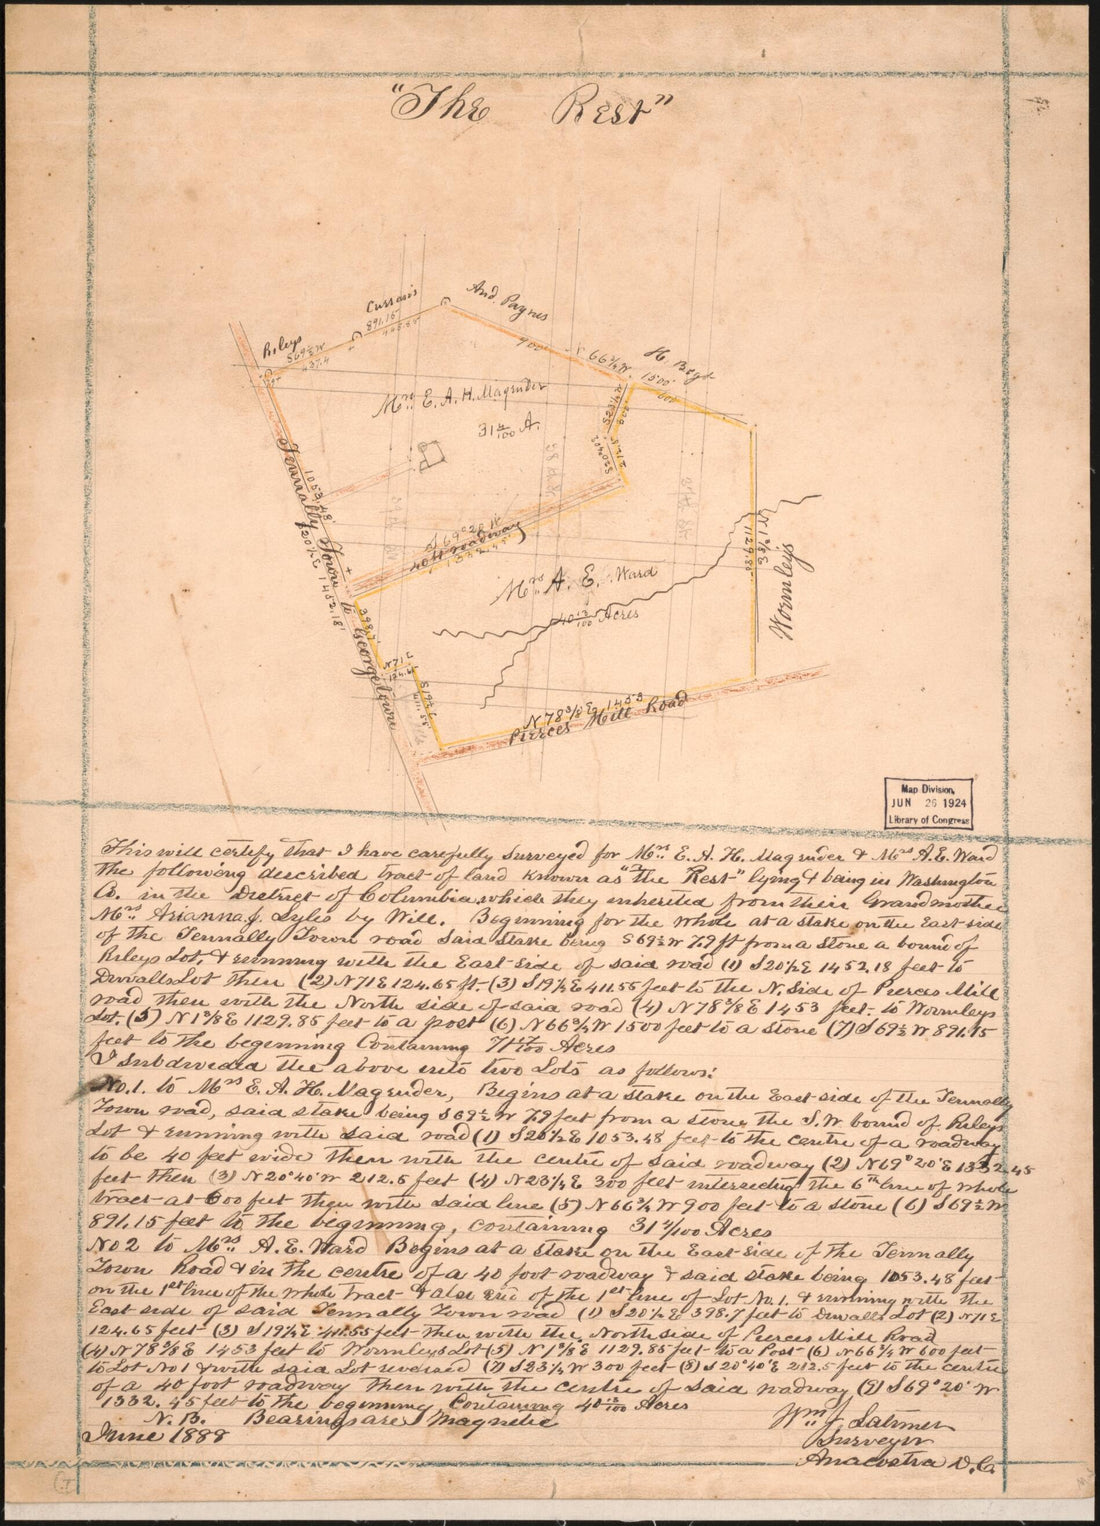 "The Rest"
And. Paynes
Currans
891.15
Rileys
S69½W
437.4
900
N 66¾ W
H. Boyd
1500
600
Mrs. E. A. H. Magruder
S23¼W
300
212.5
S20°40'E
1053.48
Tennally Town to Georgetown
S20½E 1452.18
S 69°20' W
40 ft roadway
1332.45
Mrs. A. E. Ward
Acres
N 1⅜ E
1129.85
Wormley's
398.7
N71E
124.65
S19½E
411.55
N 78⅜ E 1453
Pierces Mill Road
Map Division,
JUN 26 1924
Library of Congress
This will certify that I have carefully surveyed for Mrs. E. A. H. Magruder & Mrs A. E. Ward
the following described tract of land known as "The Rest" lying & being in Washington
Co. in the District of Columbia, which they inherited from their Grandmother
Mrs. Arianna J. Lyles by Will. Beginning for the whole at a stake on the East side
of the Tennally Town road said stake being S69½W 7.9 ft from a stone a bound of
Rileys Lot, & running with the East side of said road (1) S20½E 1452.18 feet to
Duvalls Lot then (2) N71E 124.65 ft- (3) S19½E 411.55 feet to the N. side of Pierces Mill
road then with the North side of said road (4) N78⅜E 1453 feet- to Wormleys
Lot. (5) N1⅜E 1129.85 feet to a post (6) N66¾W 1500 feet to a stone (7) S69½W 891.15
feet to the beginning Containing Acres
I subdivided the above into two Lots as follows:
No. 1. to Mrs E. A. H. Magruder, Begins at a stake on the East side of the Tennally
Town road, said stake being S69½W 7.9 feet from a stone the S.W bound of Rileys
Lot & running with said road (1) S20½E 1053.48 feet to the centre of a roadway
to be 40 feet wide then with the centre of said roadway (2) N69°20'E 1332.45
feet then (3) N20°40'W 212.5 feet (4) N23¼E 300 feet intersecting the 6th line of whole
tract at 600 feet then with said line (5) N66¾W 900 feet to a stone (6) S69½W
891.15 feet to the beginning, containing Acres
No 2 to Mrs. A. E. Ward Begins at a stake on the East side of the Tennally
Town Road & in the centre of a 40 foot roadway & said stake being 1053.48 feet
on the 1st line of the whole tract & also end of the 1st line of Lot No. 1. & running with the
East side of said Tennally Town road (1) S20½E 398.7 feet to Duvalls Lot (2) N71E
124.65 feet (3) S19½E 411.55 feet then with the North side of Pierces Mill Road
(4) N78⅜E 1453 feet to Wormleys Lot (5) N1⅜E 1129.85 feet to a Post (6) N66¾W 600 feet
to Lot No 1 & with said Lot reversed (7) S23¼W 300 feet (8) S20°40'E 212.5 feet to the centre
of a 40 foot roadway then with the centre of said roadway (9) S69°20'W
1332.45 feet to the beginning, Containing Acres
N. B. Bearings are Magnetic
June 1888
Wm J. Latimer
Surveyor
Anacostia D.C.